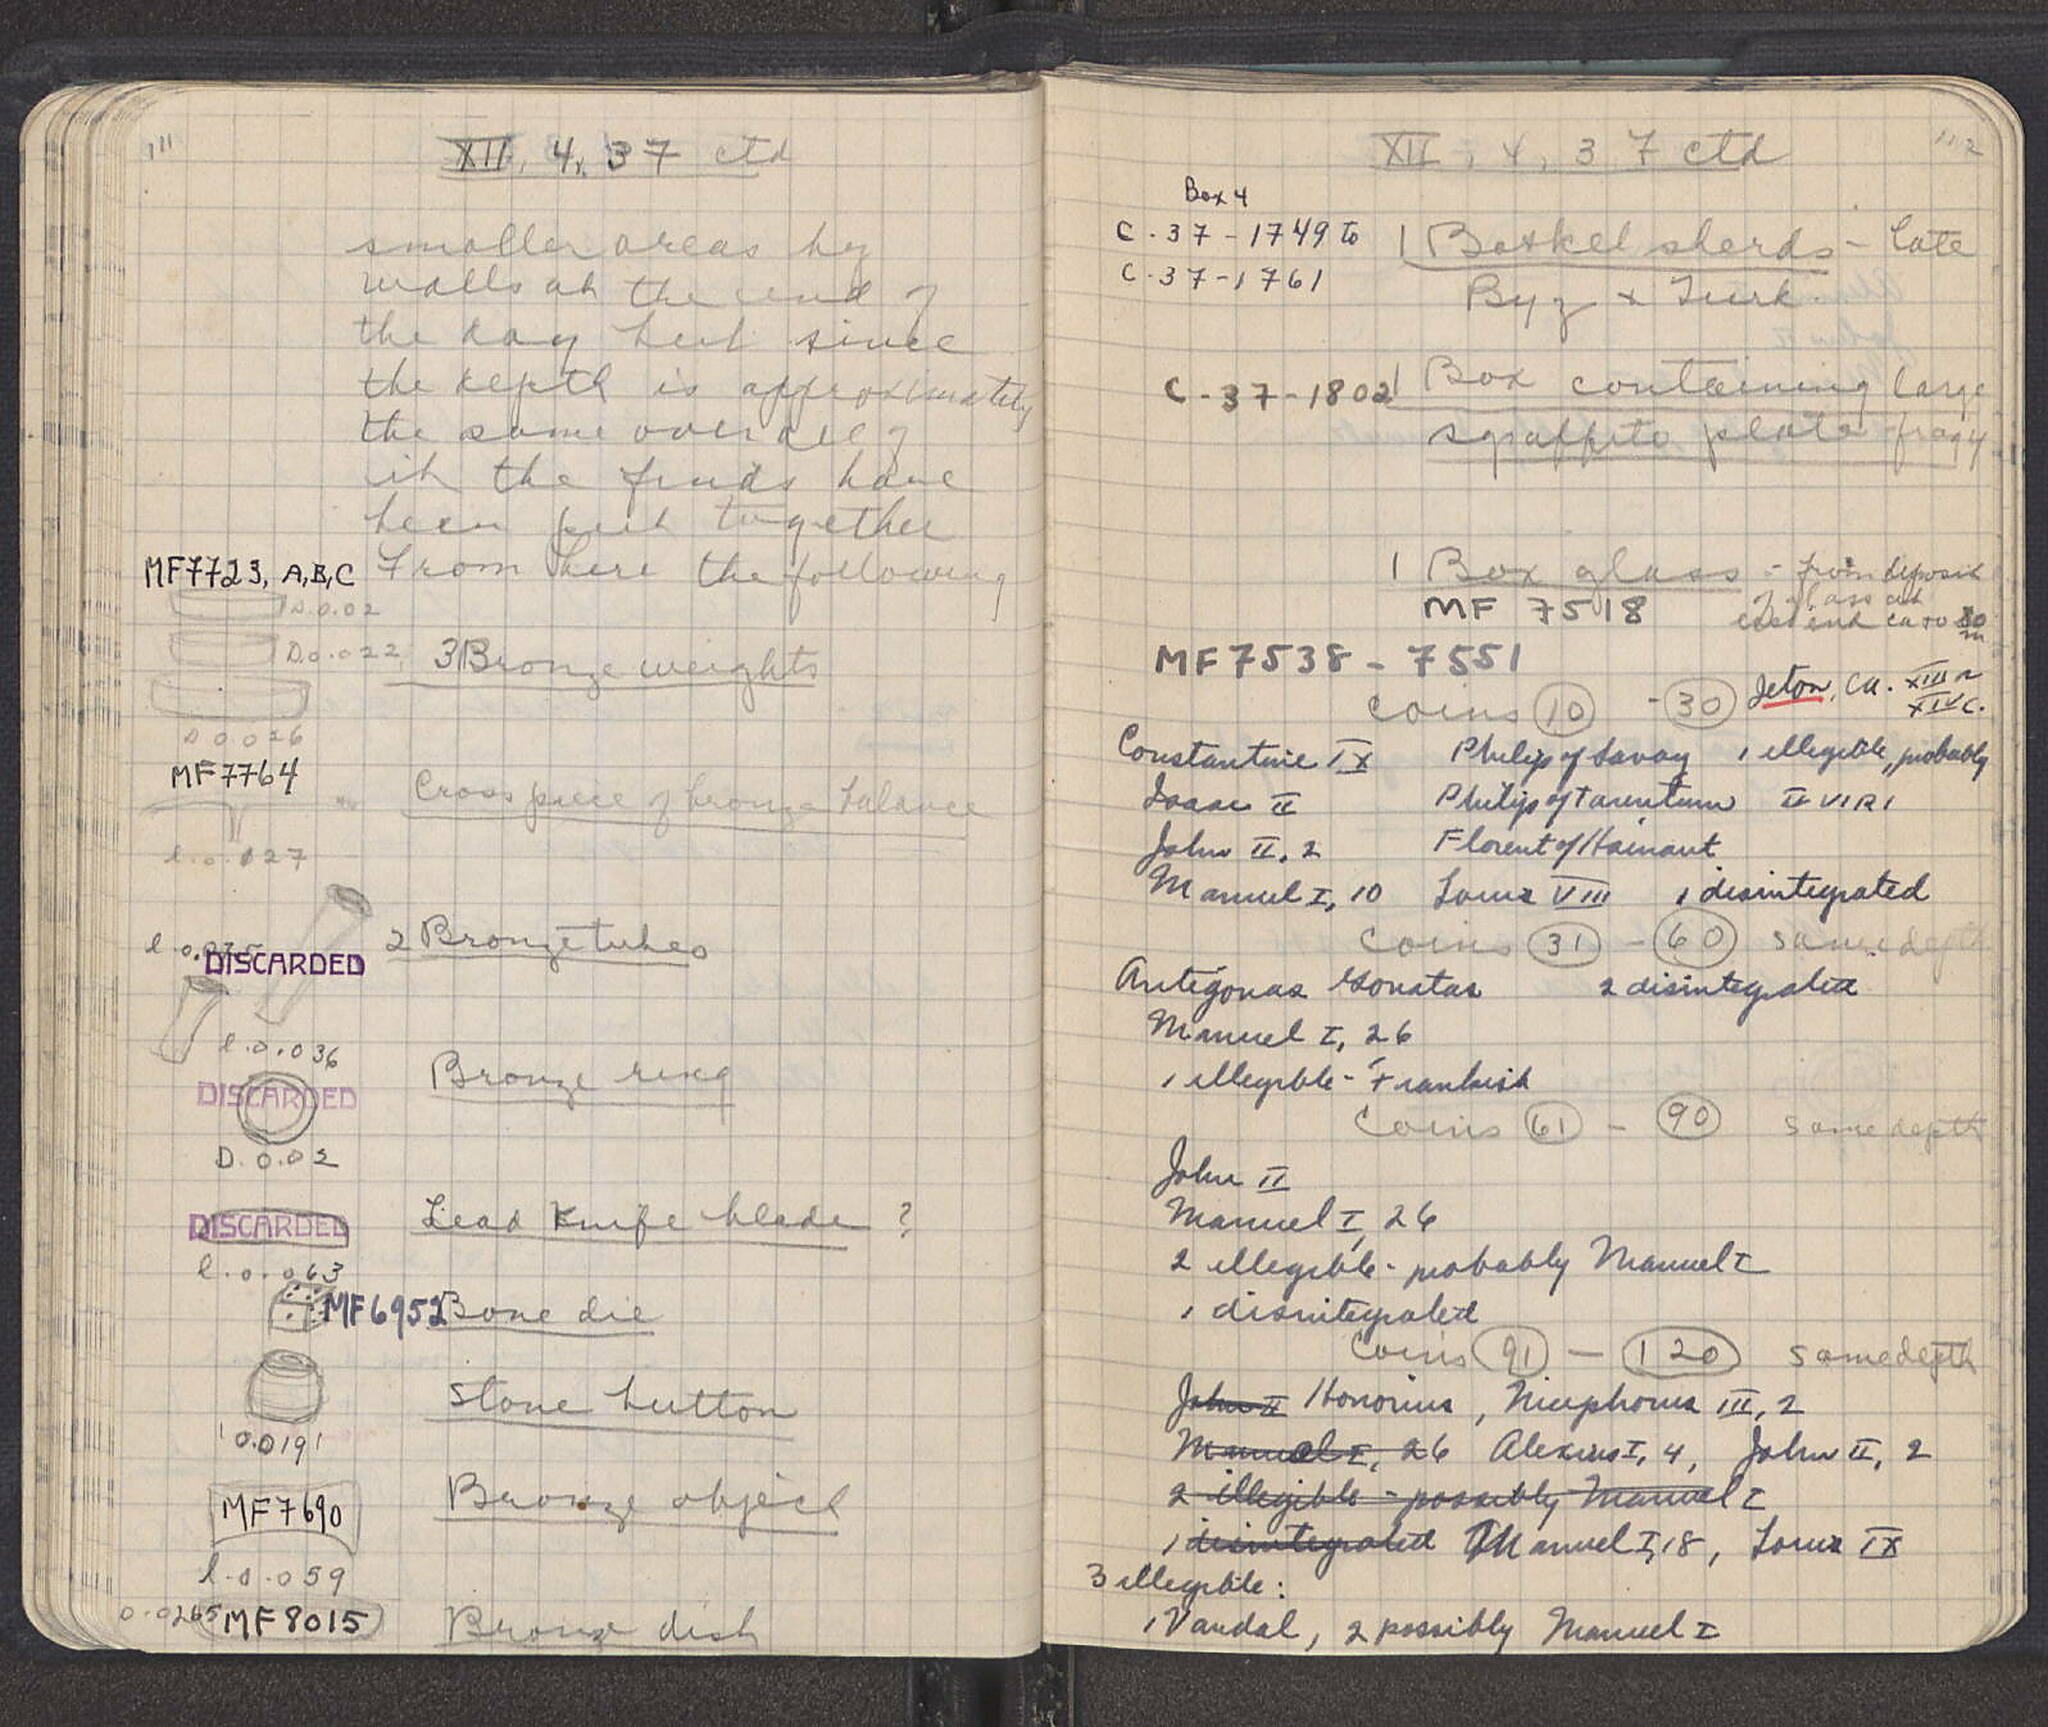 111
XII, 4, 37 ctd
smaller areas by
walls at the end of
the day but since
the depth is approximately
the same over all of
it the finds have
been put together
MF7723, A,B,C From here the following
D.0.02
D.0.022 3 Bronze weights
D 0.026
MF7764
Cross piece of bronze balance
l.0.027
2 Bronze tubes
DISCARDED
l.0.036
Bronze ring
DISCARDED
D.0.02
DISCARDED Lead Knife blade ?
l.0.063
MF6952 Bone die
Stone button
0.0191
MF7690 Bronze object
l.0.059
0.0265 MF8015 Bronze dish
112
XII, 4, 37 ctd
Box 4
C-37-1749 to 1 Basket sherds - late
C-37-1761 Byz & Turk.
C-37-1802 1 Box containing large
sgraffito plate fragg
1 Box glass - from deposit
of glass at
MF 7518
MF7538-7551
Coins 10 - 30 Jeton, ca. XIII or
XIV c.
Constantine IX Philip of Savoy 1 illegible, probably
Isaac II Philip of Tarentum II VIRI
John II, 2 Florent of Hainaut
Manuel I, 10 Louis VIII 1 disintegrated
Coins 31 - 60 same depth
Antigonas Gonatas 2 disintegrated
Manuel I, 26
1 illegible - Frankish
Coins 61 - 90 same depth
John II
Manuel I, 26
2 illegible - probably Manuel I
1 disintegrated
Coins 91 - 120 same depth
John II Honorius, Nicephorus III, 2
Manuel I, 26 Alexius I, 4, John II, 2
2 illegible - possibly Manuel I
1 disintegrated Manuel I, 18, Louis IX
3 illegible:
1 Vandal, 2 possibly Manuel I